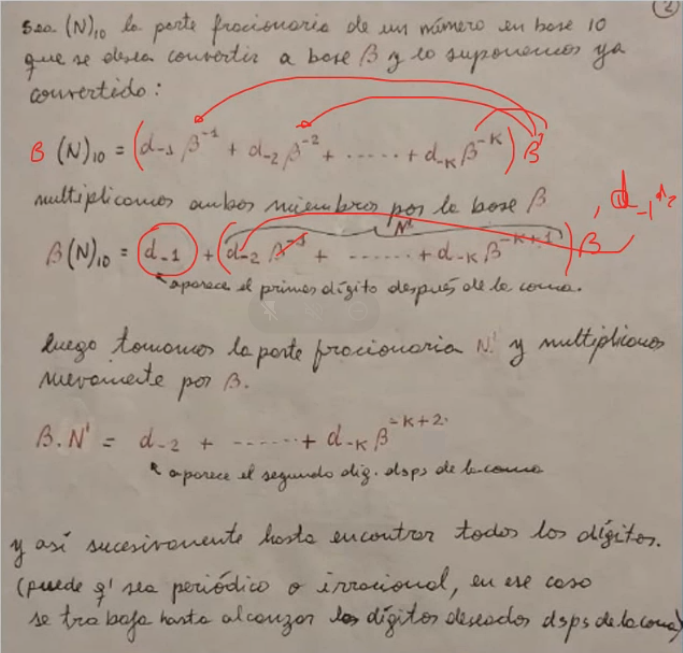 ②
Sea (N)₁₀ la parte fracionaria de un número en base 10
que se desea convertir a base β y lo suponemos ya
convertido:
β (N)₁₀ = (d₋₁ β⁻¹ + d₋₂ β⁻² + ...... + d₋ₖ β⁻ᴷ) β
multiplicamos ambos miembros por la base β
, d₋₁ d₂
N'
β(N)₁₀ = d₋₁ + (d₋₂ β⁻¹ + ...... + d₋ₖ β⁻ᴷ⁺¹) β
aparece el primer dígito después de la coma.
luego tomamos la parte fracionaria N' y multiplicamos
nuevamente por β.
β.N' = d₋₂ + ......+ d₋ₖ β⁻ᴷ⁺²
aparece el segundo dig. dsps de la coma
y así sucesivamente hasta encontrar todos los dígitos.
(puede q' sea periódico o irracional, en ese caso
se trabaja hasta alcanzar los dígitos deseados dsps de la coma)